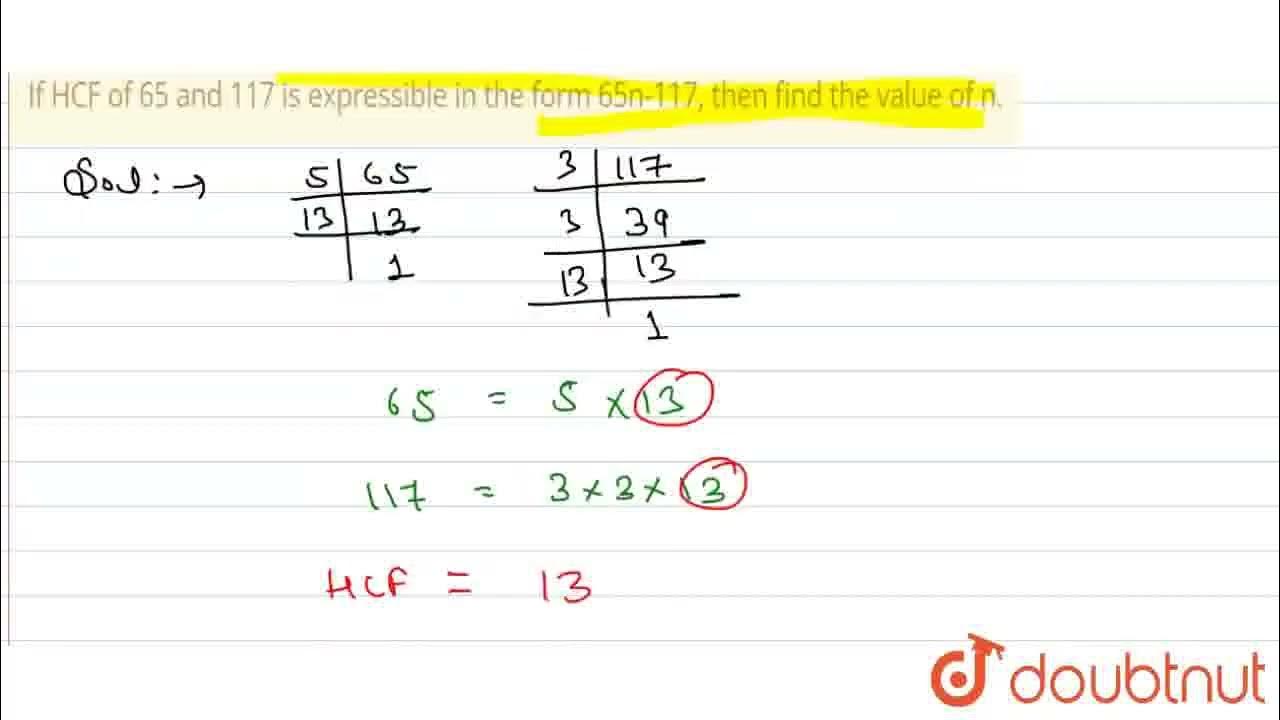 If HCF of 65 and 117 is expressible in the form 65n-117, then find the value of n.
Sol:→
5 | 65
13 | 13
1
3 | 117
3 | 39
13 | 13
1
65 = 5 × 13
117 = 3 × 3 × 13
HCF = 13
doubtnut